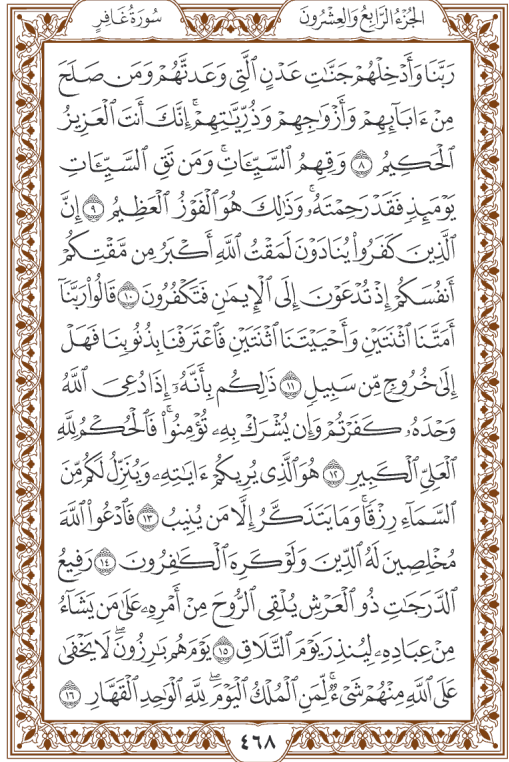 سُورَةُ غَافِرٍ
الجُزْءُ الرَّابِعُ وَالعِشْرُونَ
رَبَّنَا وَأَدْخِلْهُمْ جَنَّٰتِ عَدْنٍ ٱلَّتِي وَعَدتَّهُمْ وَمَن صَلَحَ
مِنْ ءَابَآئِهِمْ وَأَزْوَٰجِهِمْ وَذُرِّيَّٰتِهِمْۚ إِنَّكَ أَنتَ ٱلْعَزِيزُ
ٱلْحَكِيمُ ٨ وَقِهِمُ ٱلسَّيِّـَٔاتِۚ وَمَن تَقِ ٱلسَّيِّـَٔاتِ
يَوْمَئِذٍ فَقَدْ رَحِمْتَهُۥۚ وَذَٰلِكَ هُوَ ٱلْفَوْزُ ٱلْعَظِيمُ ٩ إِنَّ
ٱلَّذِينَ كَفَرُوا۟ يُنَادَوْنَ لَمَقْتُ ٱللَّهِ أَكْبَرُ مِن مَّقْتِكُمْ
أَنفُسَكُمْ إِذْ تُدْعَوْنَ إِلَى ٱلْإِيمَٰنِ فَتَكْفُرُونَ ١٠ قَالُوا۟ رَبَّنَآ
أَمَتَّنَا ٱثْنَتَيْنِ وَأَحْيَيْتَنَا ٱثْنَتَيْنِ فَٱعْتَرَفْنَا بِذُنُوبِنَا فَهَلْ
إِلَىٰ خُرُوجٍ مِّن سَبِيلٍ ١١ ذَٰلِكُم بِأَنَّهُۥٓ إِذَا دُعِيَ ٱللَّهُ
وَحْدَهُۥ كَفَرْتُمْ وَإِن يُشْرَكْ بِهِۦ تُؤْمِنُوا۟ۚ فَٱلْحُكْمُ لِلَّهِ
ٱلْعَلِيِّ ٱلْكَبِيرِ ١٢ هُوَ ٱلَّذِي يُرِيكُمْ ءَايَٰتِهِۦ وَيُنَزِّلُ لَكُم مِّنَ
ٱلسَّمَآءِ رِزْقًاۚ وَمَا يَتَذَكَّرُ إِلَّا مَن يُنِيبُ ١٣ فَٱدْعُوا۟ ٱللَّهَ
مُخْلِصِينَ لَهُ ٱلدِّينَ وَلَوْ كَرِهَ ٱلْكَٰفِرُونَ ١٤ رَفِيعُ
ٱلدَّرَجَٰتِ ذُو ٱلْعَرْشِ يُلْقِي ٱلرُّوحَ مِنْ أَمْرِهِۦ عَلَىٰ مَن يَشَآءُ
مِنْ عِبَادِهِۦ لِيُنذِرَ يَوْمَ ٱلتَّلَاقِ ١٥ يَوْمَ هُم بَٰرِزُونَۖ لَا يَخْفَىٰ
عَلَى ٱللَّهِ مِنْهُمْ شَيْءٌۚ لِّمَنِ ٱلْمُلْكُ ٱلْيَوْمَۖ لِلَّهِ ٱلْوَٰحِدِ ٱلْقَهَّارِ ١٦
٤٦٨